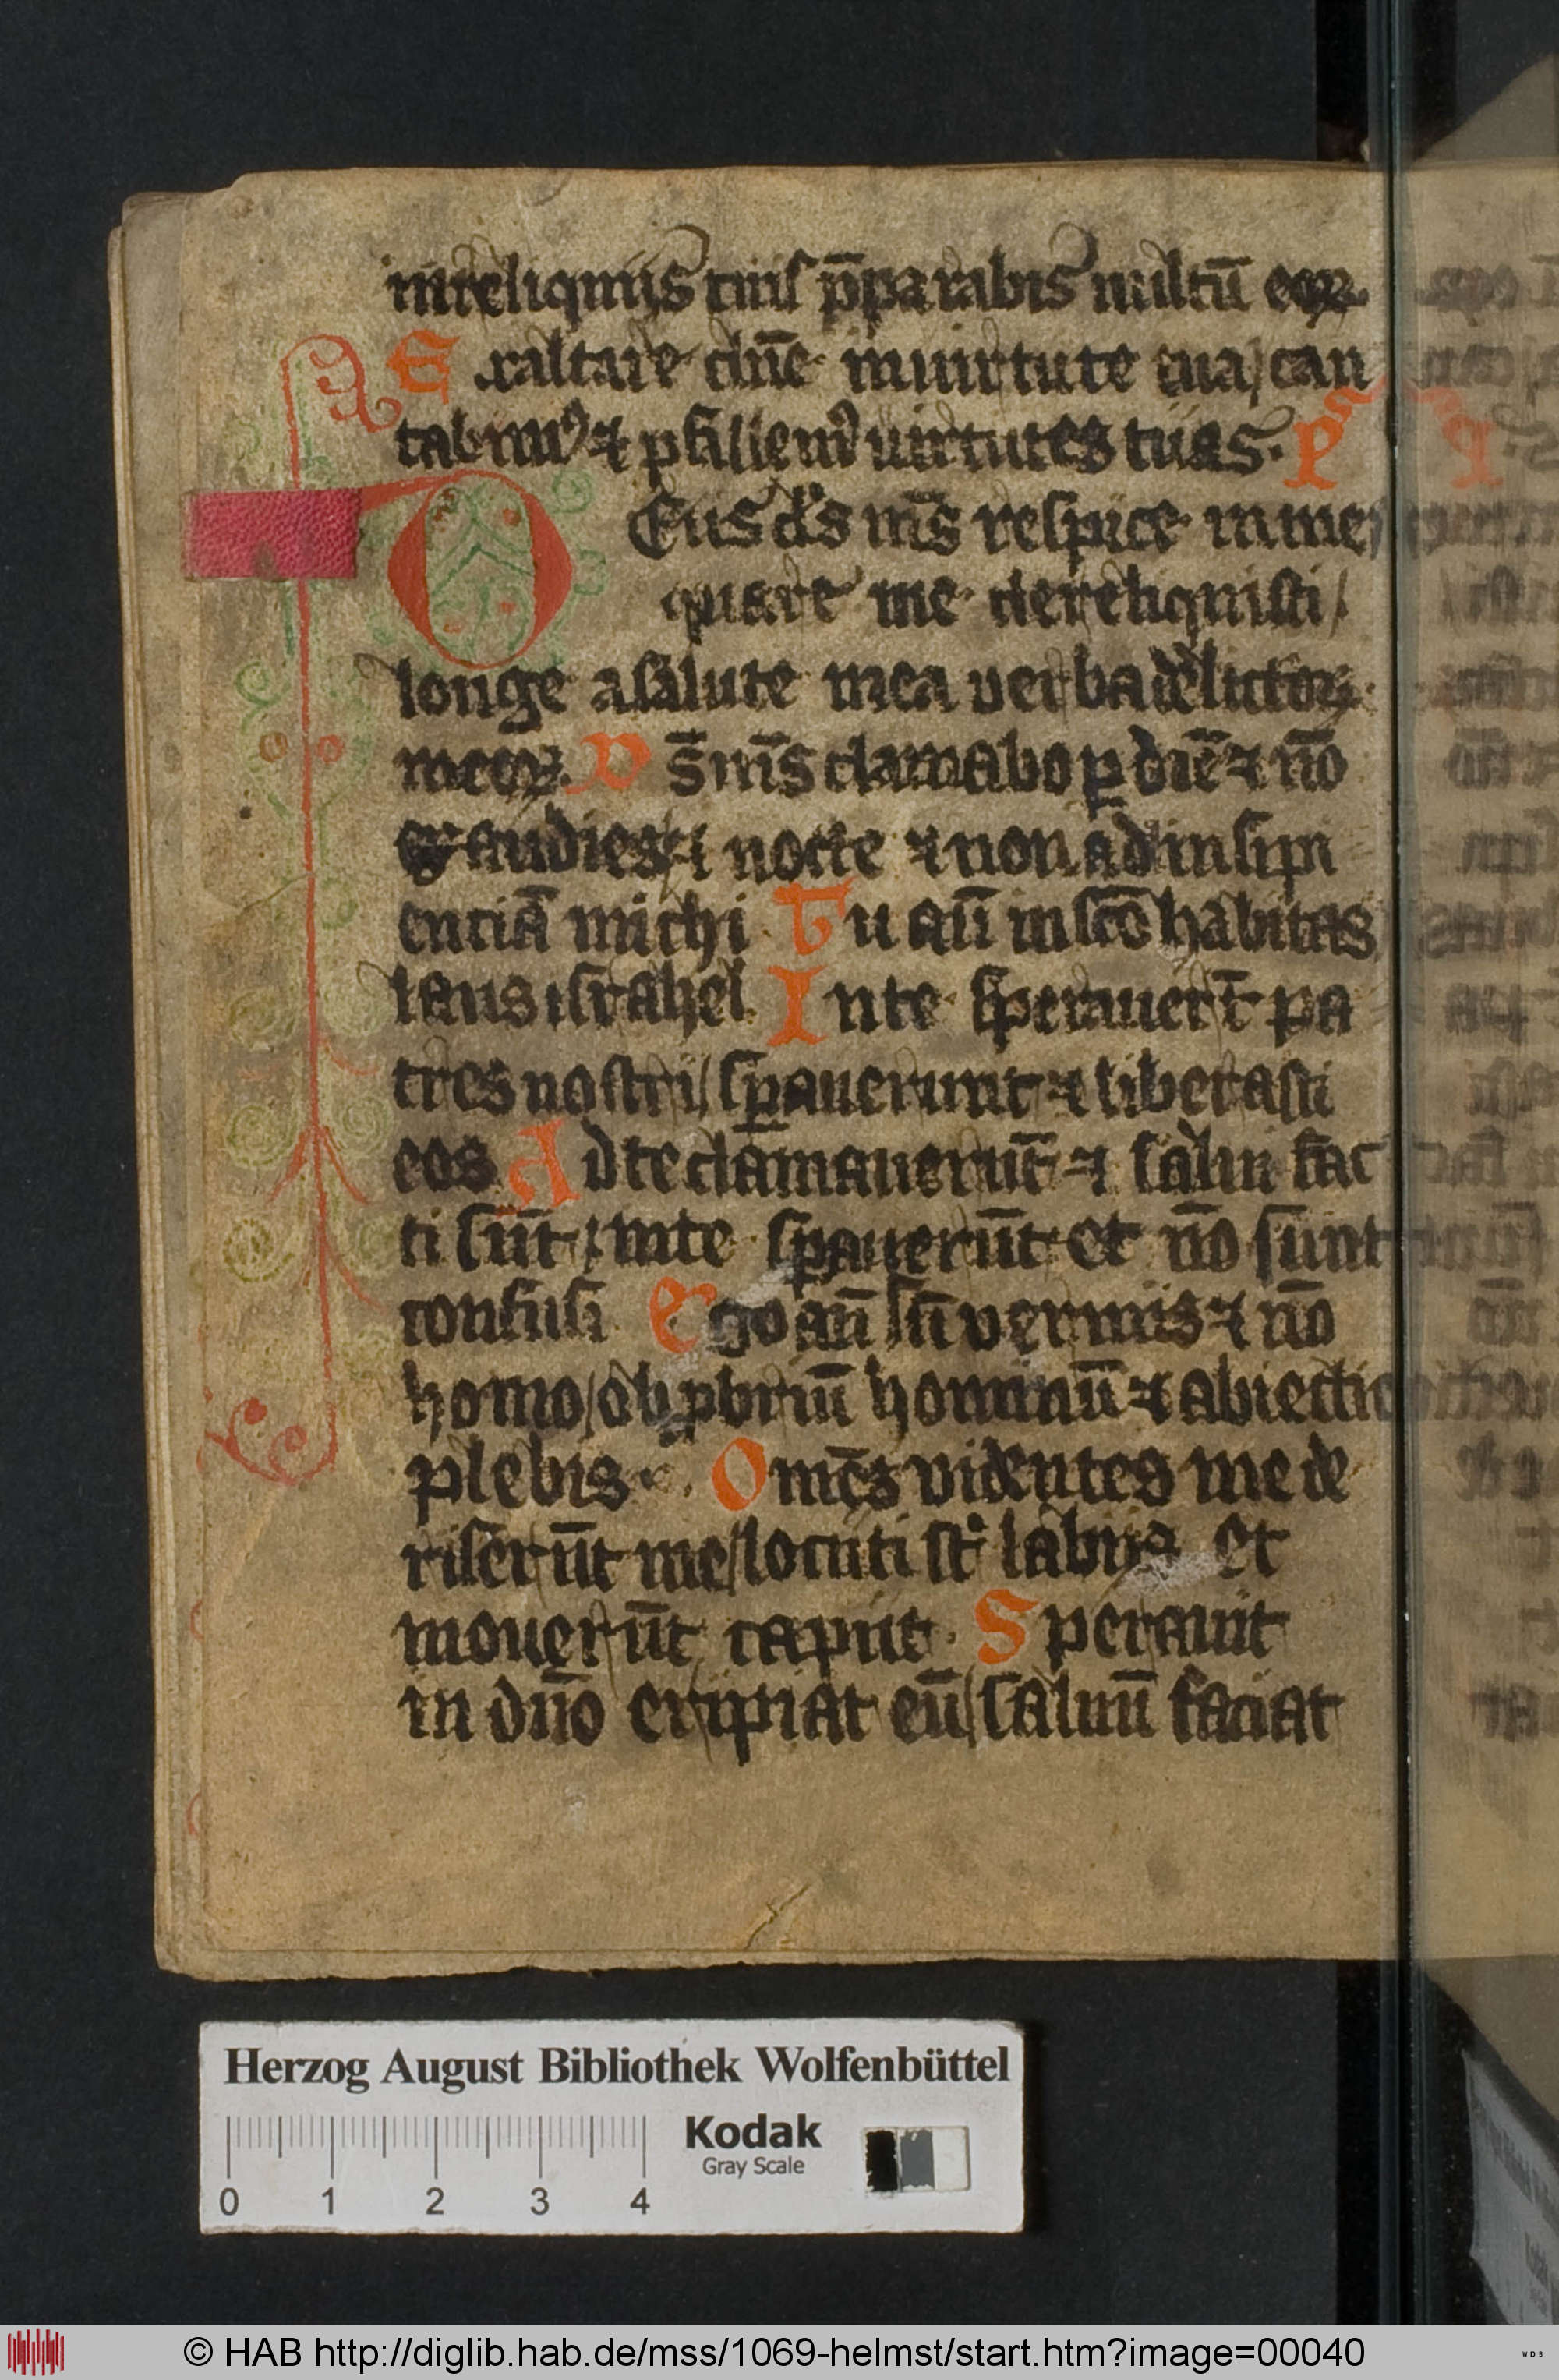 inreliquiis tuis p̄parabis uultū eoꝝ
Exaltare dn̄e inuirtute tua / can
tabimꝰ ⁊ psallemꝰ uirtutes tuas. ps
Deus ds̄ ms̄ respice in me /
quare me dereliquisti /
longe asalute mea uerba delictoꝝ
meoꝝ. Ds̄ ms̄ clamabo ꝑ diē ⁊ nō
exaudies / ⁊ nocte ⁊ non ad insipi
entiā michi Tu aū in scō habitas
laus israhel Inte sperauert̄ pa
tres nostri / sꝑauerunt ⁊ liberasti
eos Ad te clamauerūt ⁊ salui fac
ti sūt / inte sꝑauerūt et nō sunt
confusi Ego aū sū vermis ⁊ nō
homo / obꝓbriū hominū ⁊ abiectio
plebis. Omēs videntes me de
riserūt me / locuti st̄ labiis et
mouerūt caput. Sperauit
in dn̄o eripiat eū / saluū faciat
Herzog August Bibliothek Wolfenbüttel
Kodak
Gray Scale
0 1 2 3 4
© HAB http://diglib.hab.de/mss/1069-helmst/start.htm?image=00040
WDB